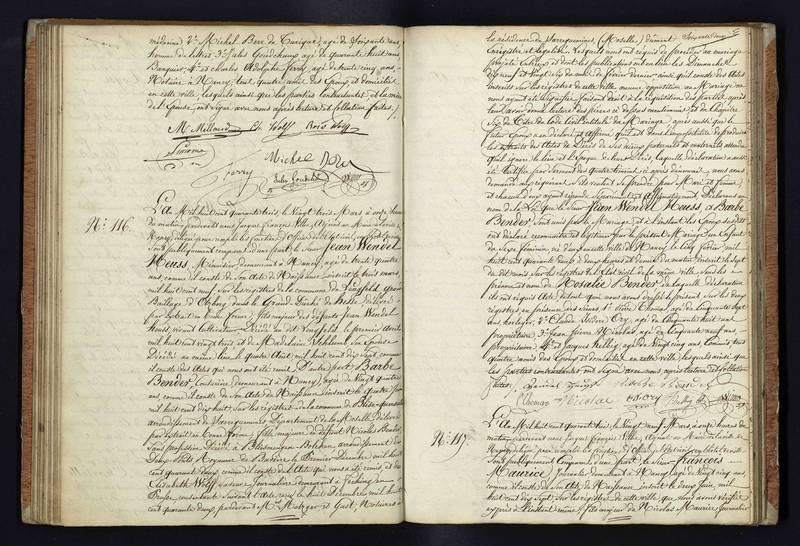 médecine, 2.° Michel Berr de Turique, âgé de soixante ans,
homme de lettres 3.° Jules Goudchaux, âgé de quarante huit ans
Banquier, 4.° et Charles Adolphe Ferry, âgé de trente cinq ans,
Notaire à Nancy, tout quatre amis des Epoux et domiciliés
en cette ville, lesquels ainsi que les parties contractantes et la mère
de l'Epouse, ont signé avec nous après lecture et collation faites,
Simon
Michel Berr
Ferry
Jules Goudchaux
N.° 116.
L'An Mil huit cent quarante trois, le Vingt trois Mars à onze heures
du matin, pardevant nous Jacques François
Nancy, délégué pour remplir les fonctions d'Officier de l'Etat civil
sont publiquement comparus d'une part, le Sieur Jean Wendel
Heuss, Menuisier, demeurant à Nancy, âgé de trente quatre
ans, comme il conste de son Acte de Naissance inscrit le trois mars,
mil huit cent neuf sur les registres de la commune de Lengfeld
Bailliage d' dans le Grand Duché de Hesse délivré
par Extrait en bonne forme; fils majeur des défunts Jean Wendel
Heuss, vivant cultivateur Décédé au dit Lengfeld le premier Avril
mil huit cent vingt trois et de Madeleine son Epouse
Décédée au même lieu, le quatre Août, mil huit cent dix sept comme
il conste des Actes qui nous ont été remis. D'autre part Barbe
Bender, Couturière, demeurant à Nancy, âgée de Vingt quatre
ans, comme il conste de son Acte de Naissance inscrit le quatre Juin
mil huit cent dix huit sur les registres de la commune de
arrondissement de Sarreguemines, Département de la Moselle délivré
par Extrait en bonne forme; fille majeure de défunt Nicolas Bender
sans profession Décédé à Bliesmengen Bolchen arrondissement des
Deux Ponts Royaume de Bavière le Premier Décembre mil huit
cent quarante deux comme il conste de l'Acte qui nous a été remis et de
Elisabeth Wolff sa veuve Journalière demeurant à
Prusse, consentante suivant Acte reçu le huit Décembre mil huit
cent quarante deux, pardevant M.es Metzger et Gust, Notaires à
la résidence de Sarreguemines (Moselle) dûment
Enregistré et légalisé. Lesquels nous ont requis de procéder au mariage
projeté entre eux et dont les publications ont eu lieu les Dimanches
dix neuf et vingt six du mois de février dernier, ainsi qu'il conste des Actes
inscrits sur les registres de cette ville, aucune opposition au Mariage ne
nous ayant été signifiée faisant droit à la réquisition des parties après
leur avoir donné lecture des pièces ci dessus mentionnées et du Chapitre
Six du Titre du Code Civil intitulé du Mariage, après aussi que le
futur Epoux a déclaré et affirmé qu'il est dans l'impossibilité de produire
les extraits des Actes de Décès de ses ayeux paternels et maternels attendu
qu'il ignore le lieu et l'époque de leurs Décès, laquelle déclaration a aussi
été certifiée par serment des quatre témoins ci après dénommés, nous avons
demandé aux requérants s'ils veulent se prendre pour Mari et femme,
et chacun d'eux ayant répondu séparément et affirmativement, Déclarons au
nom de la Loi que le Sieur Jean Wendel Heuss, et Barbe
Bender, sont unis par le Mariage, et à l'instant les Epoux susdits
ont déclaré reconnaître et légitimer par le présent Mariage un Enfant
du Sexe féminin, né d'eux en cette ville de Nancy le cinq février mil
huit cent quarante deux à deux heures et demie du matin inscrit le sept
du dit mois sur les registres de l'Etat civil de la même ville sous les
prénoms et nom de Rosalie Bender de laquelle déclaration
ils ont requis Acte, de tout quoi nous avons dressé le présent sur les deux
registres, en présence des Sieurs, 1.° Pierre Thomas, âgé de cinquante sept
ans, horloger, 2.° Claude Isidore Ory, âgé de cinquante huit ans
propriétaire, 3.° Jean Pierre Nicolas âgé de cinquante neuf ans,
propriétaire, 4.° et Jacques Helbig, âgé de vingt cinq ans, Commis, tous
quatre amis des Epoux et domiciliés en cette ville, lesquels, ainsi que
les parties contractantes ont signé avec nous après lecture et collation
faites.
Thomas Nicolas Ory Helbig
N.° 117.
L'An Mil huit cent quarante trois, le Vingt neuf Mars à onze heures du
matin, pardevant nous Jacques François
Nancy, délégué pour remplir les fonctions d'Officier de l'Etat civil
sont publiquement Comparus d'une part, le Sieur François
Maurice, Journalier demeurant à Nancy, âgé de Vingt cinq ans,
comme il conste de son Acte de Naissance inscrit le deux Juin, mil
huit cent dix sept sur les registres de cette ville, que nous avons vérifié
exprès à l'instant même; fils majeur de Nicolas Maurice, Journalier